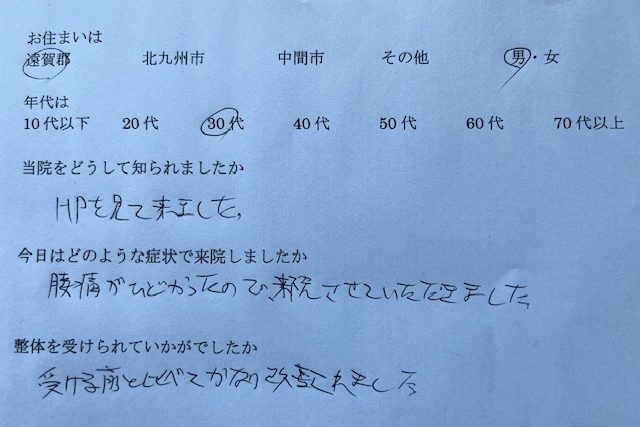 お住まいは
遠賀郡 北九州市 中間市 その他 男・女
年代は
10代以下 20代 30代 40代 50代 60代 70代以上
当院をどうして知られましたか
HPを見て来ました。
今日はどのような症状で来院しましたか
腰痛がひどかったので、来院させていただきました。
整体を受けられていかがでしたか
受ける前と比べてかなり改善されました